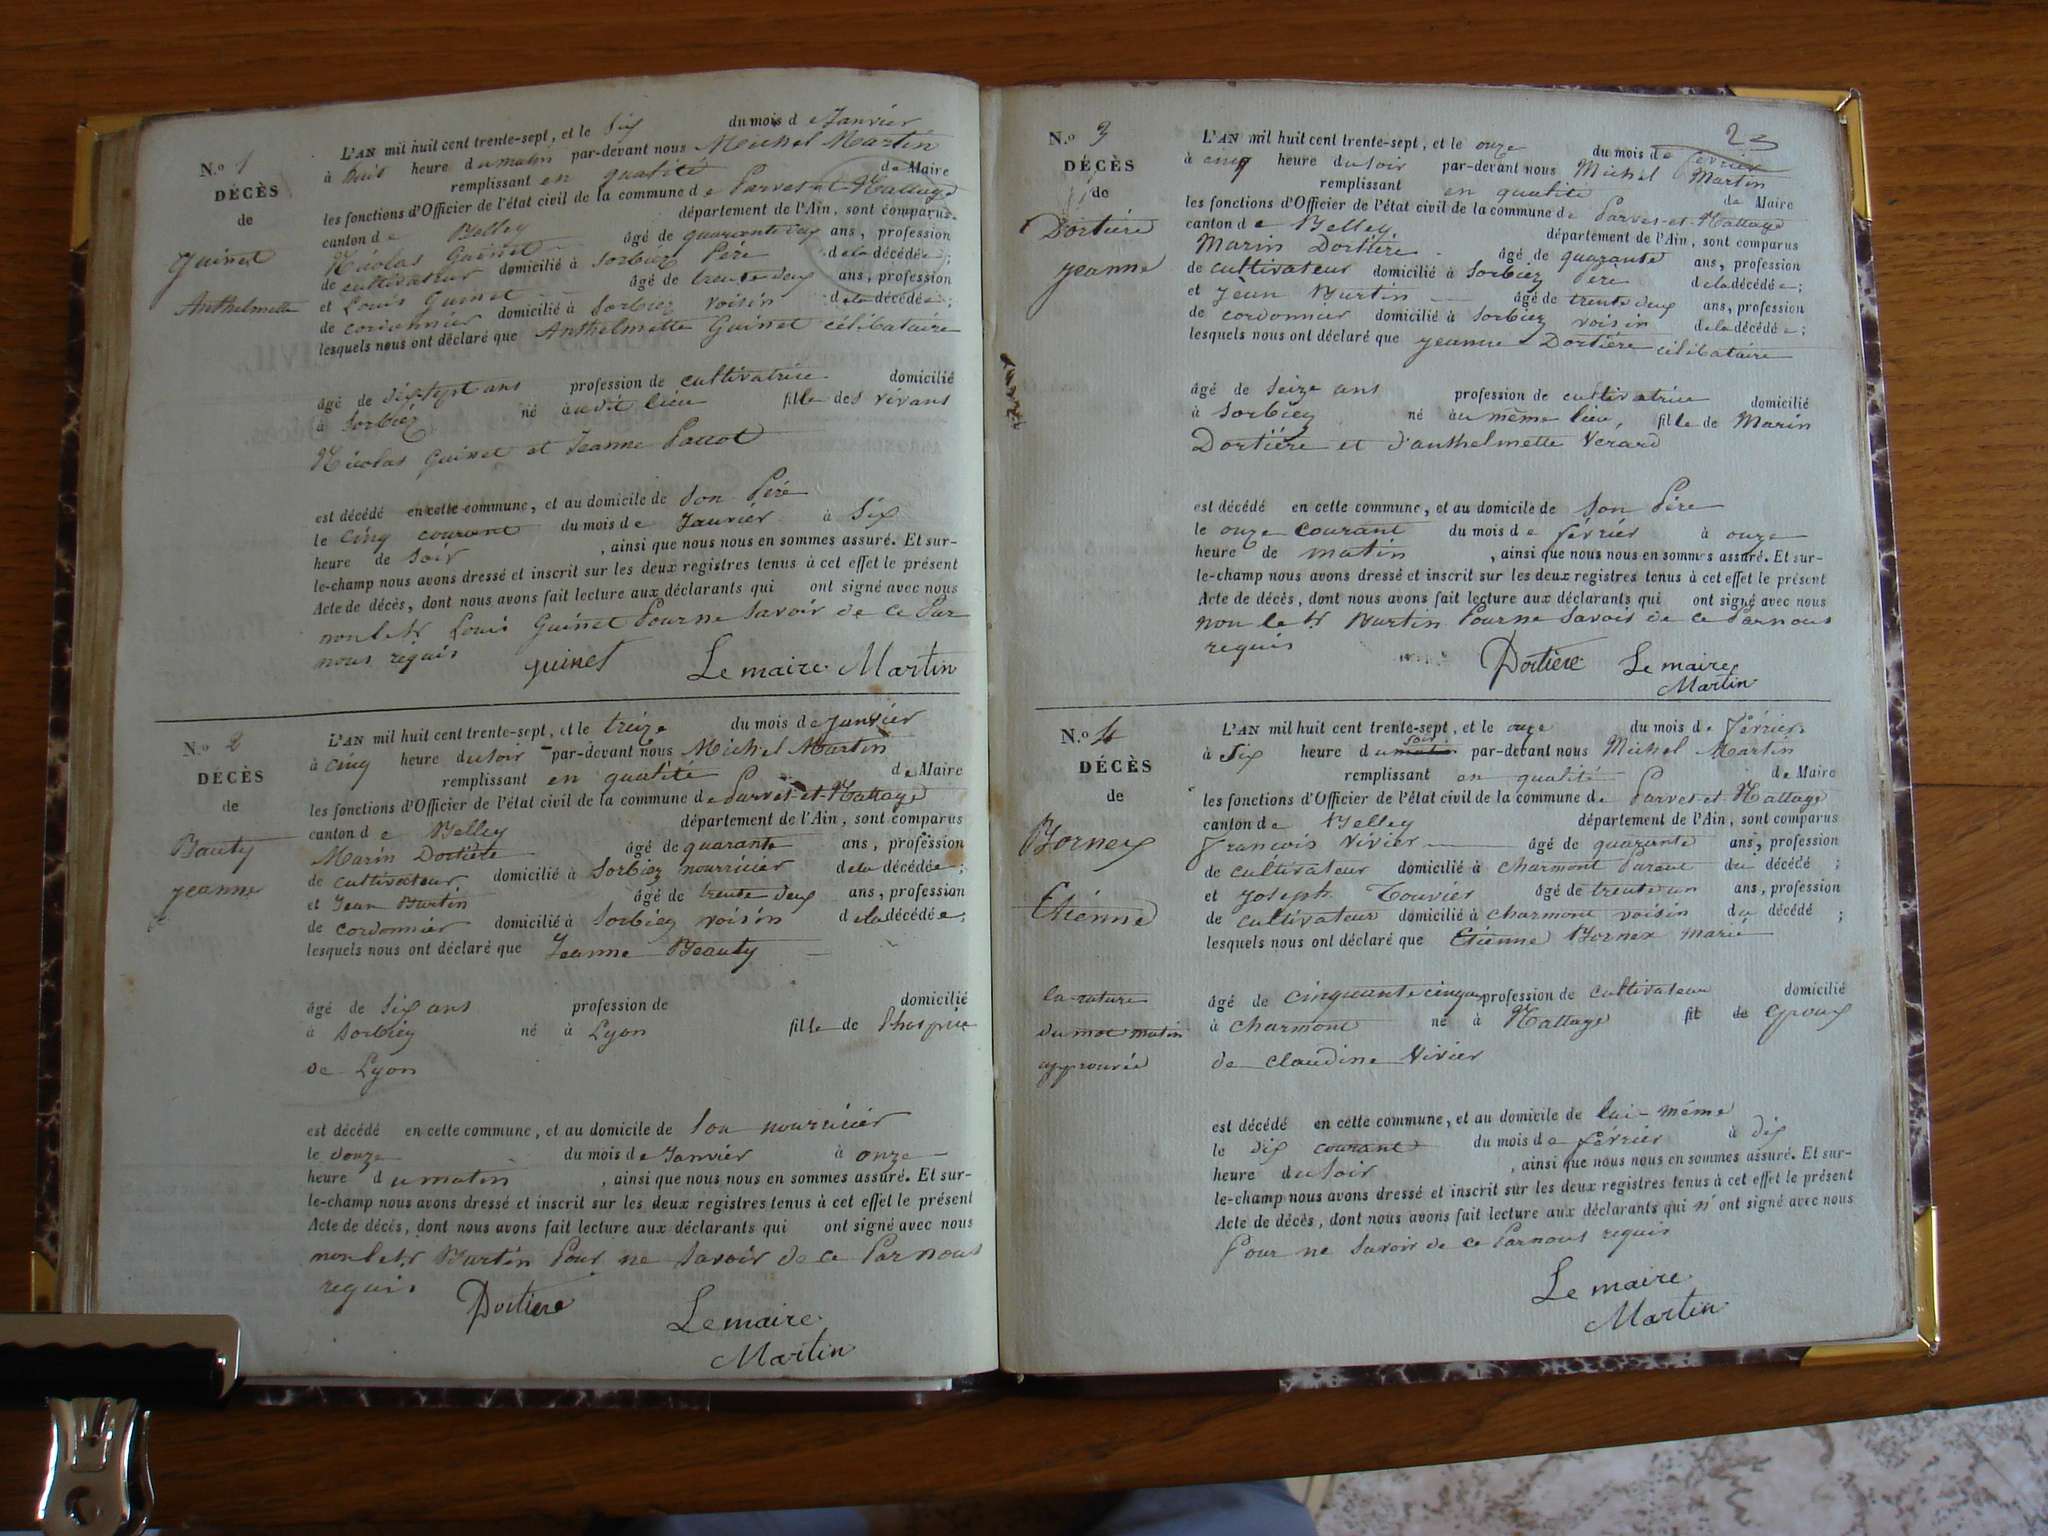 N.º 1
DÉCÈS
de
Guinet
Anthelmette
L'AN mil huit cent trente-sept, et le Six du mois de Janvier
à huit heure du matin par-devant nous Michel Martin
remplissant en qualité de Maire
les fonctions d'Officier de l'état civil de la commune de Parves-et-Nattage
canton de Belley département de l'Ain, sont comparus
Nicolas Guinet âgé de quarante deux ans, profession
de cultivateur domicilié à Sorbiez Père de la décédée;
et Louis Guinet âgé de trente deux ans, profession
de cordonnier domicilié à Sorbiez voisin de la décédée;
lesquels nous ont déclaré que Anthelmette Guinet célibataire
âgé de dixsept ans profession de cultivatrice domicilié
à Sorbiez né audit lieu fille des vivans
Nicolas Guinet et Jeanne
est décédé en cette commune, et au domicile de Son Père
le Cinq courant du mois de Janvier à Six
heure de Soir, ainsi que nous nous en sommes assuré. Et sur-
le-champ nous avons dressé et inscrit sur les deux registres tenus à cet effet le présent
Acte de décès, dont nous avons fait lecture aux déclarants qui ont signé avec nous
non le Sr Louis Guinet Pour ne Savoir de ce Par
nous requis
guinet Le maire Martin
N.º 2
DÉCÈS
de
Bauty
Jeanne
L'AN mil huit cent trente-sept, et le treize du mois de Janvier
à cinq heure du soir par-devant nous Michel Martin
remplissant en qualité de Maire
les fonctions d'Officier de l'état civil de la commune de Parves-et-Nattage
canton de Belley département de l'Ain, sont comparus
Marin Dortière âgé de quarante ans, profession
de cultivateur domicilié à Sorbiez nourricier de la décédée;
et Jean Burtin âgé de trente deux ans, profession
de cordonnier domicilié à Sorbiez voisin de la décédée;
lesquels nous ont déclaré que Jeanne Beauty
âgé de Six ans profession de domicilié
à Sorbiez né à Lyon fille de l'hospice
de Lyon
est décédé en cette commune, et au domicile de Son nourricier
le douze du mois de Janvier à onze
heure du matin, ainsi que nous nous en sommes assuré. Et sur-
le-champ nous avons dressé et inscrit sur les deux registres tenus à cet effet le présent
Acte de décès, dont nous avons fait lecture aux déclarants qui ont signé avec nous
non le Sr Burtin Pour ne Savoir de ce Par nous
requis
Dortiere Le maire
Martin
2
N.º 3
DÉCÈS
de
Dortière
Jeanne
L'AN mil huit cent trente-sept, et le onze du mois de février
à cinq heure du soir par-devant nous Michel Martin
remplissant en qualité de Maire
les fonctions d'Officier de l'état civil de la commune de Parves-et-Nattage
canton de Belley département de l'Ain, sont comparus
Marin Dortière âgé de quarante ans, profession
de cultivateur domicilié à Sorbiez Père de la décédée;
et Jean Burtin âgé de trente deux ans, profession
de cordonnier domicilié à Sorbiez voisin de la décédée;
lesquels nous ont déclaré que Jeanne Dortière célibataire
âgé de Seize ans profession de cultivatrice domicilié
à Sorbiez né au même lieu, fille de Marin
Dortière et d'anthelmette Verard
est décédé en cette commune, et au domicile de Son Père
le onze courant du mois de février à onze
heure de matin, ainsi que nous nous en sommes assuré. Et sur-
le-champ nous avons dressé et inscrit sur les deux registres tenus à cet effet le présent
Acte de décès, dont nous avons fait lecture aux déclarants qui ont signé avec nous
non le Sr Burtin Pour ne Savoir de ce Par nous
requis
Dortiere Le maire
Martin
N.º 4
DÉCÈS
de
Bornex
Etienne
la rature
du mot matin
approuvée
L'AN mil huit cent trente-sept, et le onze du mois de Février
à Six heure du soir par-devant nous Michel Martin
remplissant en qualité de Maire
les fonctions d'Officier de l'état civil de la commune de Parves-et-Nattage
canton de Belley département de l'Ain, sont comparus
François Vivier âgé de quarante ans, profession
de cultivateur domicilié à charmont Parent du décédé;
et Joseph Touvier âgé de trente un ans, profession
de cultivateur domicilié à charmont voisin du décédé;
lesquels nous ont déclaré que Etienne Bornex marié
âgé de cinquante cinq profession de cultivateur domicilié
à charmont né à Nattage fil de Epoux
de claudine Vivier
est décédé en cette commune, et au domicile de lui-même
le dix courant du mois de février à dix
heure du Soir, ainsi que nous nous en sommes assuré. Et sur-
le-champ nous avons dressé et inscrit sur les deux registres tenus à cet effet le présent
Acte de décès, dont nous avons fait lecture aux déclarants qui n'ont signé avec nous
Pour ne Savoir de ce Par nous requis
Le maire
Martin